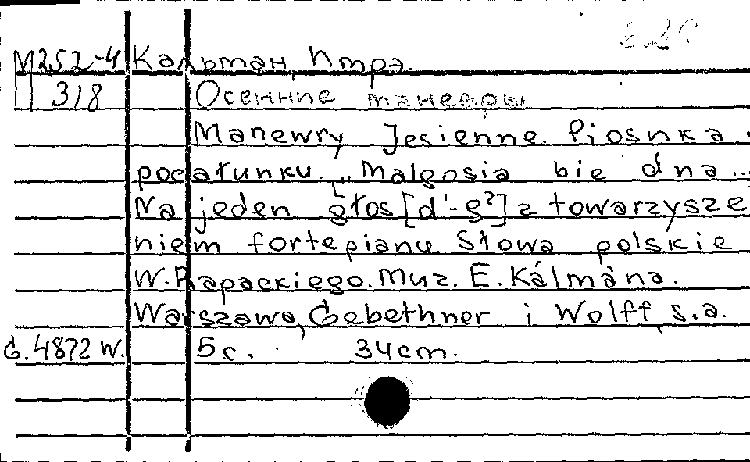 М252-4 Кальман, Имрэ.
318 Осенние маневры
Manewry Jesienne. Piosnka
pocałunku. „Malgosia bie dna...
Na jeden głos [d¹-g²] z towarzysze
niem fortepianu Słowa polskie
W. Rapackiego. Muz. E. Kálmána.
Warszawa, Gebethner i Wolff, s.a.
G.4872 W. 5 c. 34 cm.